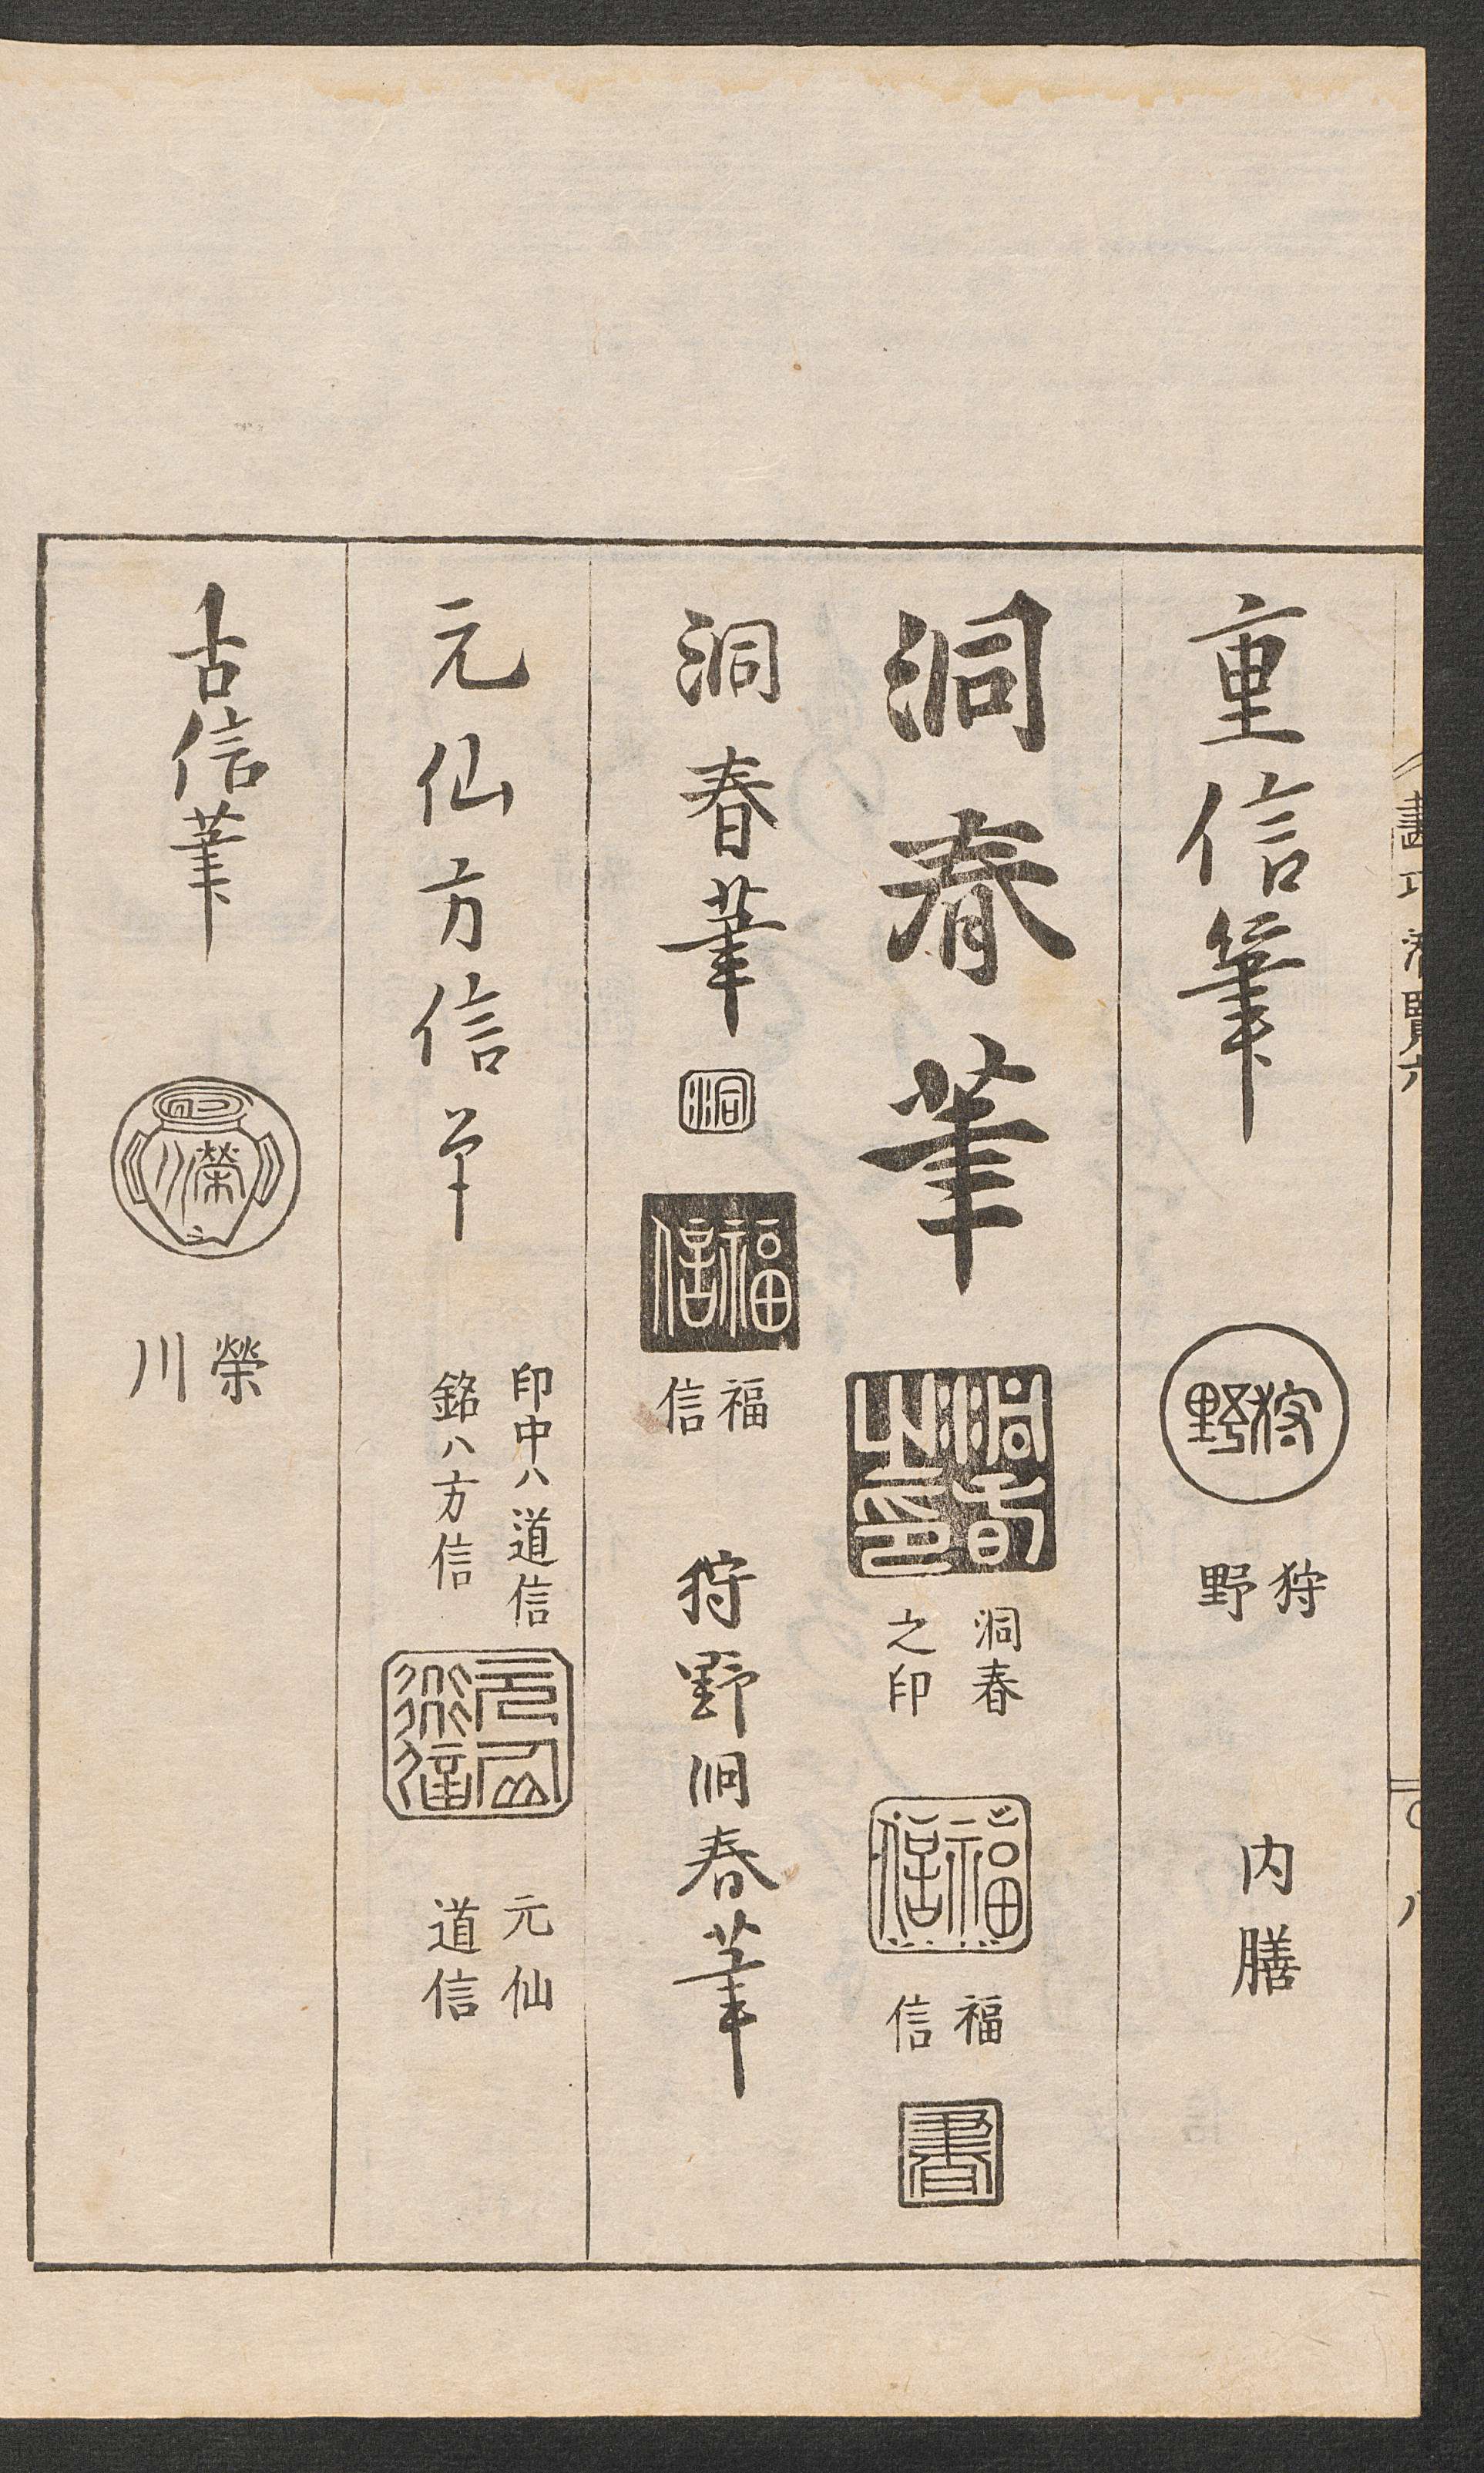 重信筆
狩野
狩野
内膳
洞春筆
洞春之印
洞春
之印
福信
福信
書
洞春筆
洞
福信
福信
狩野洞春筆
元仙方信筆
印中ハ道信
銘ハ方信
元仙道信
元仙
道信
古信筆
榮川
榮川